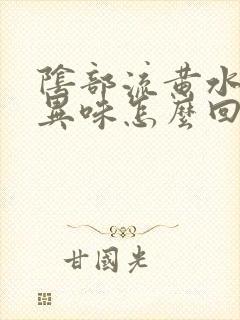 陰部流黃水
異味怎麼回
甘國光